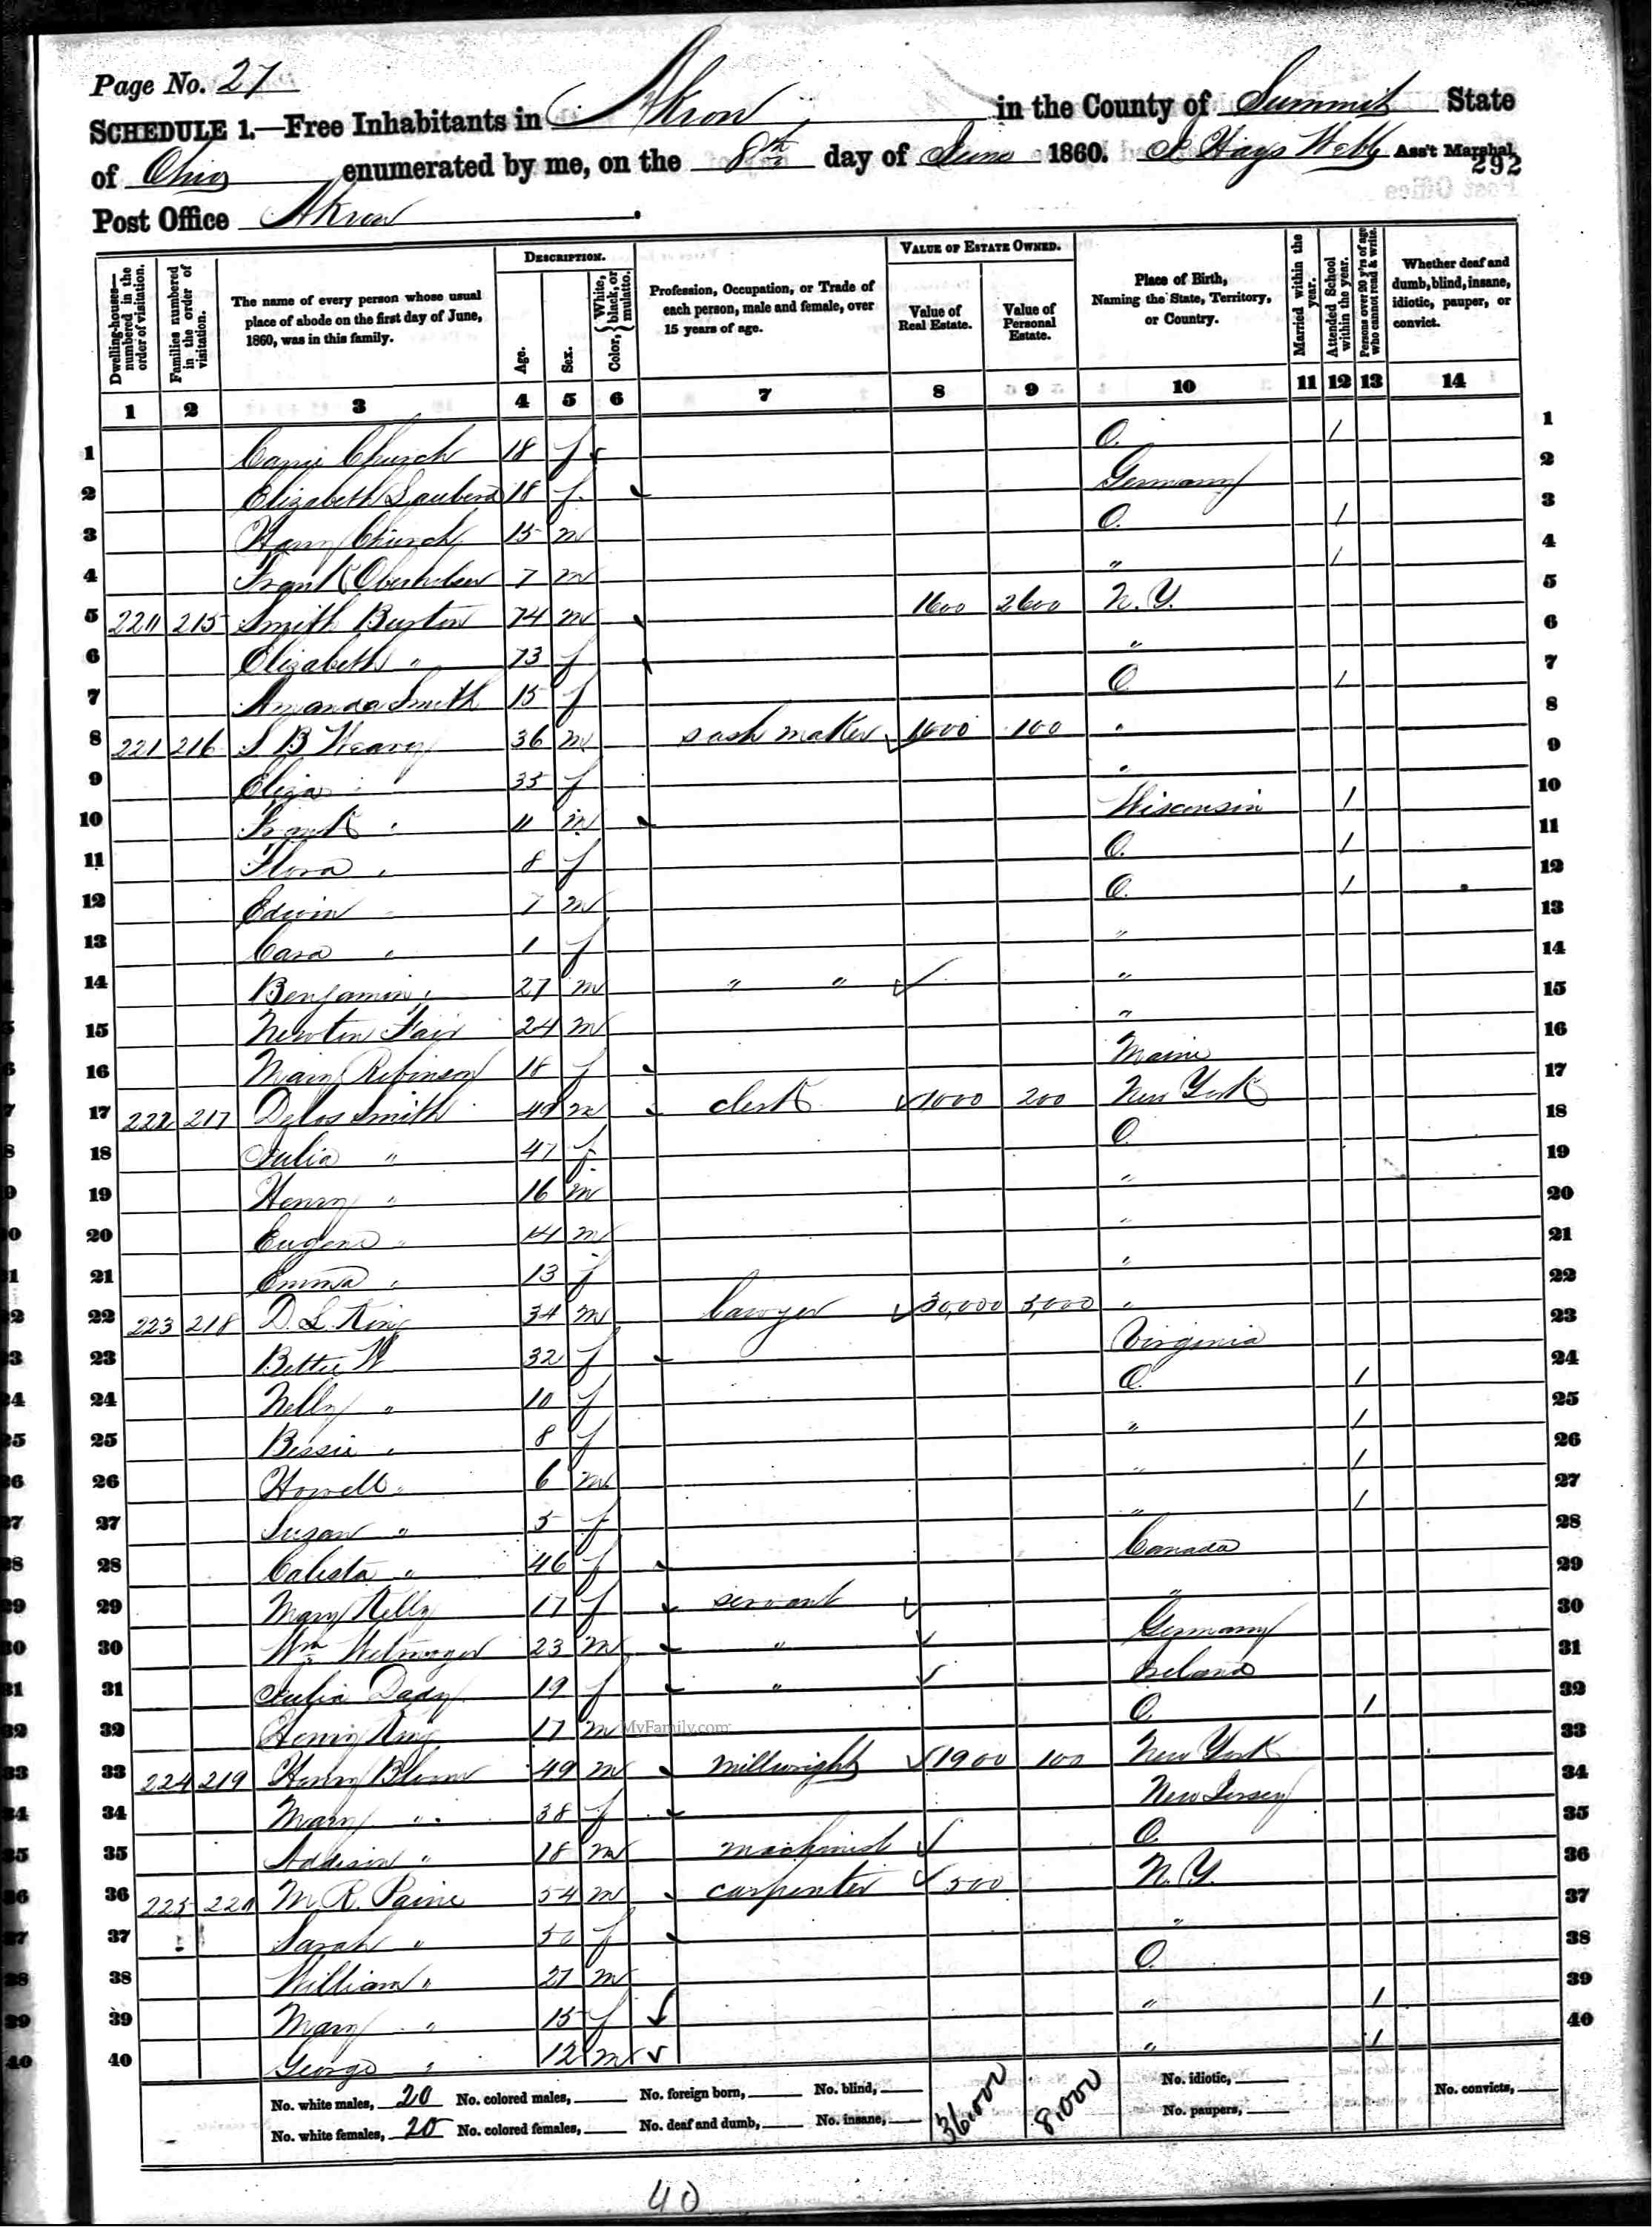 Page No. 27
SCHEDULE 1.—Free Inhabitants in Akron in the County of Summit State
of Ohio enumerated by me, on the 8th day of June 1860. Hays Webb Ass't Marshal.
292
Post Office Akron.
Dwelling-houses—numbered in the order of visitation. Families numbered in the order of visitation. The name of every person whose usual place of abode on the first day of June, 1860, was in this family. DESCRIPTION. Age. Sex. Color, { White, black, or mulatto. Profession, Occupation, or Trade of each person, male and female, over 15 years of age. VALUE OF ESTATE OWNED. Value of Real Estate. Value of Personal Estate. Place of Birth, Naming the State, Territory, or Country. Married within the year. Attended School within the year. Persons over 20 y'rs of age who cannot read & write. Whether deaf and dumb, blind, insane, idiotic, pauper, or convict.
1 2 3 4 5 6 7 8 9 10 11 12 13 14
1 Church 18 f O. / 1
2 Elizabeth 18 f Germany 2
3 Harry Church 15 m O. / 3
4 Frank 7 m " / 4
5 220 215 Smith Burton 74 m 1600 2600 N.Y. 5
6 Elizabeth " 73 f " 6
7 Amanda Smith 15 f O / 7
8 221 216 S B 36 m sash maker 1600 100 " 8
9 Eliza " 35 f " 9
10 Frank " 11 m Wisconsin / 10
11 Flora " 8 f O. / 11
12 Edwin 7 m O. / 12
13 Cara " 1 f " 13
14 Benjamin " 27 m " " " 14
15 Newton Fair 24 m " 15
16 Mary Robinson 18 f Maine 16
17 222 217 Delos Smith 49 m clerk 1000 200 New York 17
18 Julia " 47 f O 18
19 Henry " 16 m " 19
20 Eugene " 14 m " 20
21 Emma " 13 f " 21
22 223 218 D. L. King 34 m Lawyer 30,000 5,000 " 22
23 Bettie W 32 f Virginia 23
24 Nelly " 10 f O. / 24
25 Bessie " 8 f " / 25
26 Howell " 6 m " / 26
27 Susan " 5 f " / 27
28 Calista " 46 f Canada 28
29 Mary Kelly 17 f servant " 29
30 Wm 23 m " Germany 30
31 Julia Dady 19 f " Ireland 31
32 Henry King 17 m O / 32
33 224 219 Henry 49 m millwright 1900 100 New York 33
34 Mary " 38 f New Jersey 34
35 Addison " 18 m machinist O 35
36 225 220 M. R. Paine 54 m carpenter 500 N.Y. 36
37 Sarah " 50 f " 37
38 William " 21 m O. 38
39 Mary " 15 f " / 39
40 George " 12 m " / 40
MyFamily.com
No. white males, 20 No. colored males, No. foreign born, No. blind, 36,000 8,000 No. idiotic, No. convicts,
No. white females, 20 No. colored females, No. deaf and dumb, No. insane, No. paupers,
40